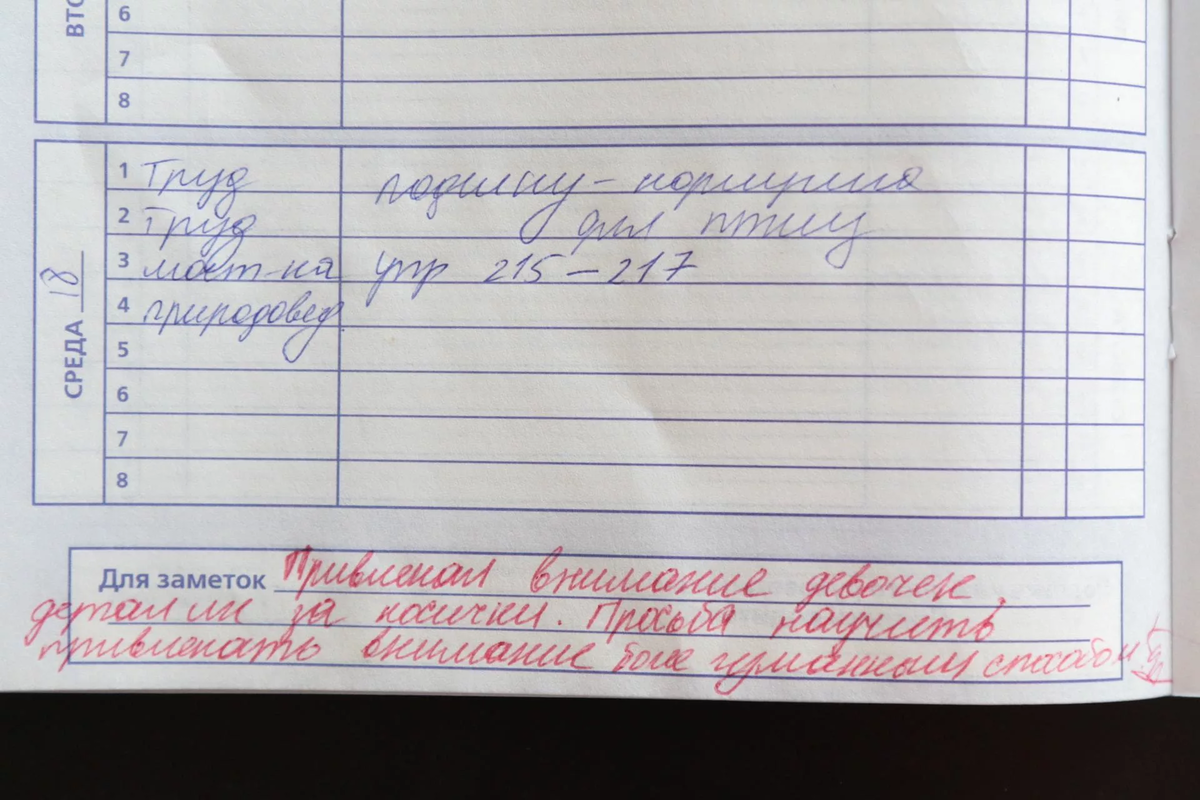 ВТО
6
7
8
СРЕДА 18
1 Труд кормушка
2 Труд для птиц
3 мат-ка упр 215 – 217
4 природовед.
5
6
7
8
Для заметок Привлекал внимание девочек,
за косички. Просьба научить
привлекать внимание более гуманным способом